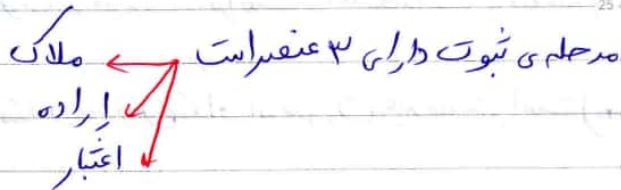 مرحله‌ی ثبوت دارای ۳ عنصر است ملاک
اراده
اعتبار